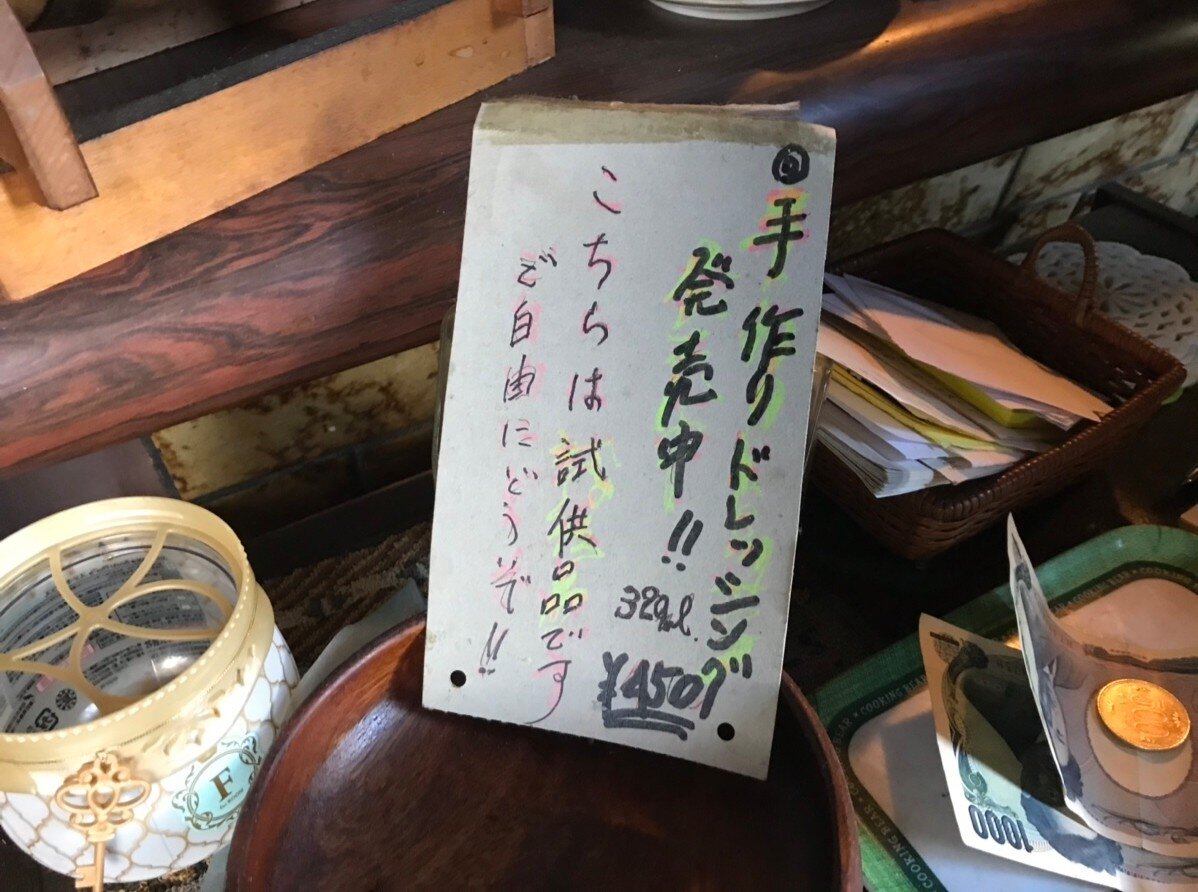 手作りドレッシング
発売中!!
320ml.
¥450
こちらは試供品です
ご自由にどうぞ!!
F
COOKING BEAR
1000
500